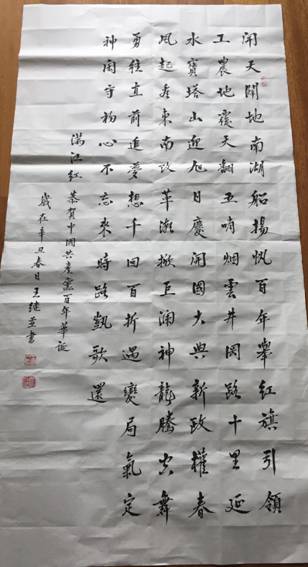 開天闢地南湖船揚帆百年舉紅旗引領
工農地覆天翻五哨烟雲井岡路十里延
水寶塔山迎旭日慶開國大典新政權春
風起秀東南改革潮掀巨瀾神龍騰舞
勇往直前追夢想千回百折遇變局氣定
神閑守初心不忘來時路凱歌還
滿江紅 恭賀中國共產黨百年華誕
歲在辛丑春日王继書